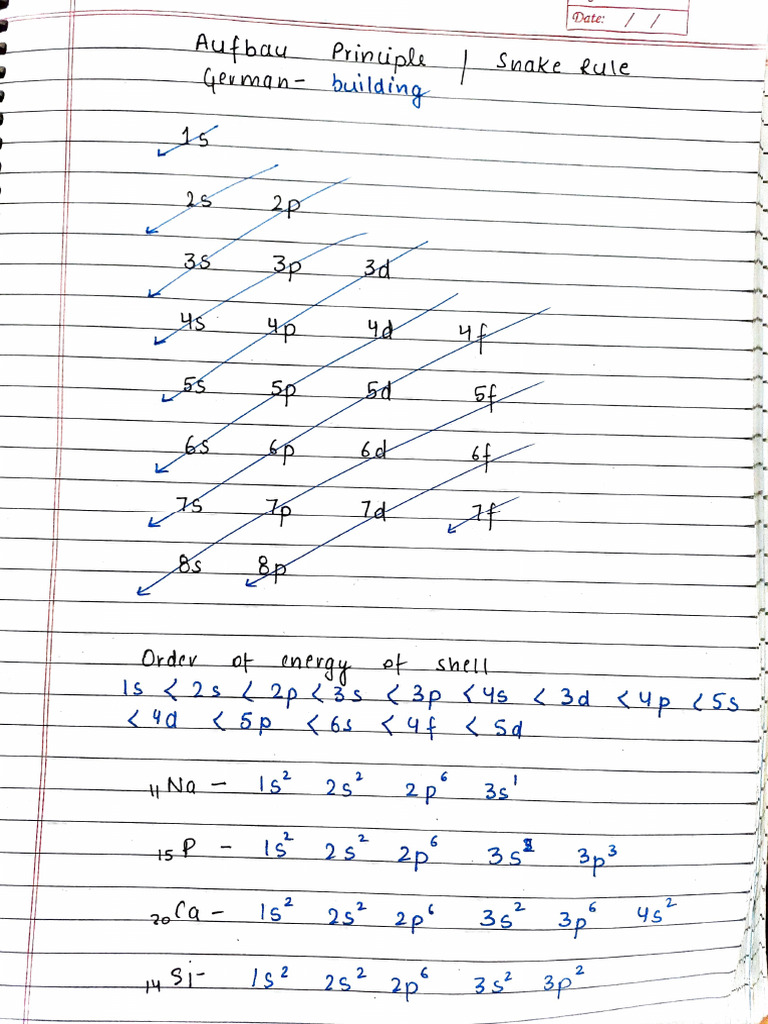 Date: / /
Aufbau Principle / Snake Rule
German - building
1s
2s 2p
3s 3p 3d
4s 4p 4d 4f
5s 5p 5d 5f
6s 6p 6d 6f
7s 7p 7d 7f
8s 8p
Order of energy of shell
1s < 2s < 2p < 3s < 3p < 4s < 3d < 4p < 5s
< 4d < 5p < 6s < 4f < 5d
₁₁Na - 1s² 2s² 2p⁶ 3s¹
₁₅P - 1s² 2s² 2p⁶ 3s² 3p³
₂₀Ca - 1s² 2s² 2p⁶ 3s² 3p⁶ 4s²
₁₄Si - 1s² 2s² 2p⁶ 3s² 3p²